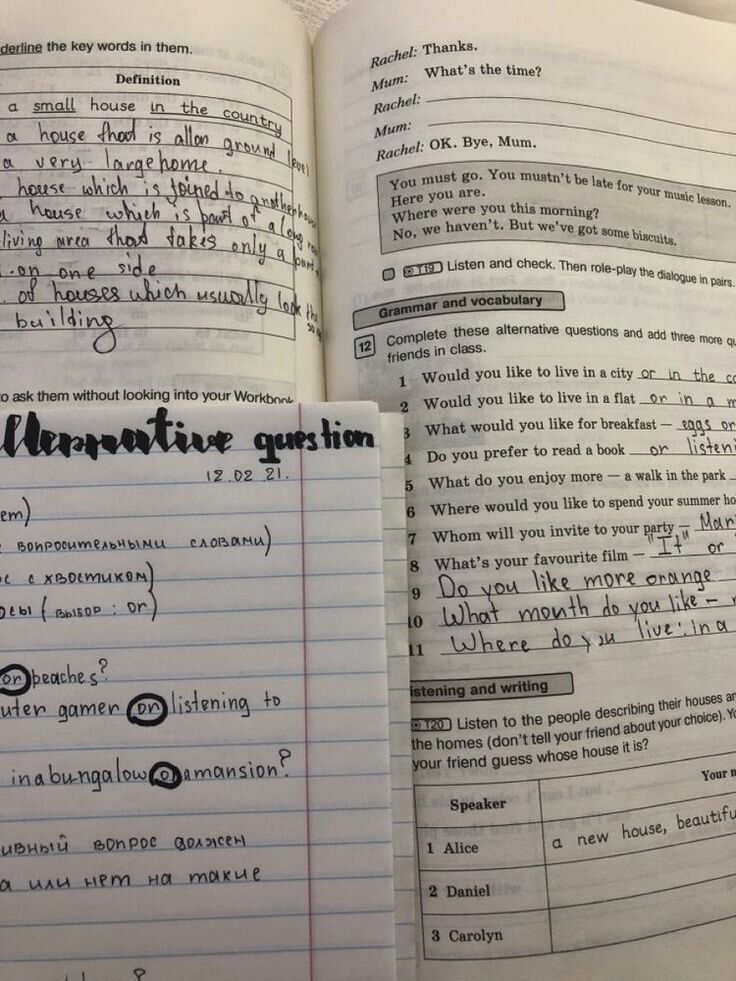 derline the key words in them.
Definition
a small house in the country
a house that is all on ground level
a very large home.
house which is joined to another house
a house which is part of a long
living area that takes only a part
on one side
of houses which usually look the
building
o ask them without looking into your Workbook
Alternative question
12.02.21.
вопросительными словами)
с с хвостиком)
осы (выбор: or)
or peaches?
uter gamer or listening to
in a bungalow or a mansion?
ивный вопрос должен
а или нет на такие
?
Rachel: Thanks.
Mum: What's the time?
Rachel:
Mum:
Rachel: OK. Bye, Mum.
You must go. You mustn't be late for your music lesson.
Here you are.
Where were you this morning?
No, we haven't. But we've got some biscuits.
T19 Listen and check. Then role-play the dialogue in pairs.
Grammar and vocabulary
12 Complete these alternative questions and add three more qu
friends in class.
1 Would you like to live in a city or in the co
2 Would you like to live in a flat or in a m
3 What would you like for breakfast — eggs or
4 Do you prefer to read a book or listeni
5 What do you enjoy more — a walk in the park
6 Where would you like to spend your summer ho
7 Whom will you invite to your party — Mar
8 What's your favourite film — "It" or
9 Do you like more orange
10 What month do you like -
11 Where do you live: in a
istening and writing
T20 Listen to the people describing their houses an
the homes (don't tell your friend about your choice). Yo
your friend guess whose house it is?
Speaker
Your n
1 Alice
a new house, beautifu
2 Daniel
3 Carolyn